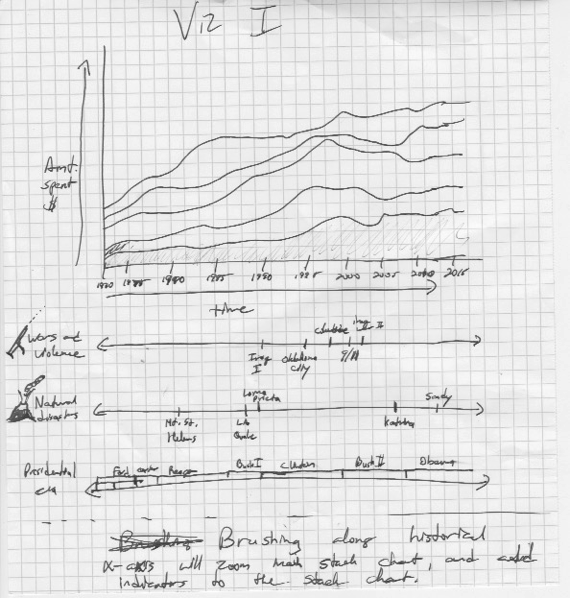 Viz I
Amt.
spent
$
1970 1975 1980 1985 1990 1995 2000 2005 2010 2015
time
Wars and
violence
Iraq
I
Oklahoma
City
9/11
Iraq
II
Natural
disasters
Mt. St.
Helens
LA
Quake
Loma
Prieta
Katrina
Sandy
Presidential
era
Ford Carter Reagan Bush I Clinton Bush II Obama
Brushing along historical
x-axis will zoom main stack chart, and add
indicators to the stack chart.